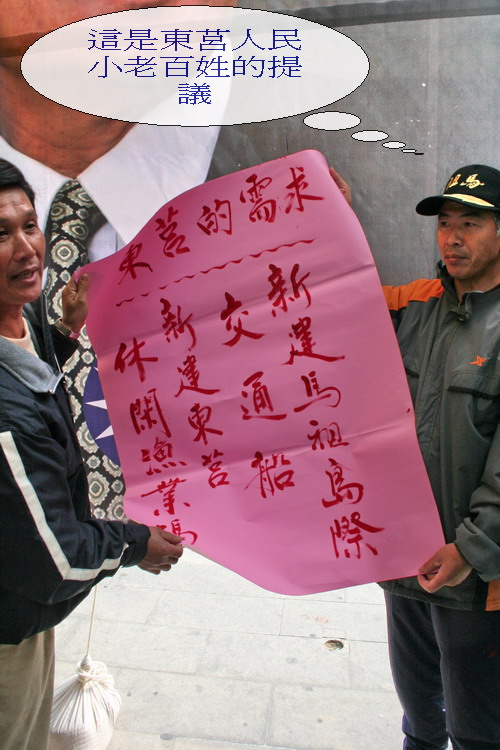 這是東莒人民
小老百姓的提
議
東莒的需求
新建馬祖島際
交通船
新建東莒
休閑漁業碼